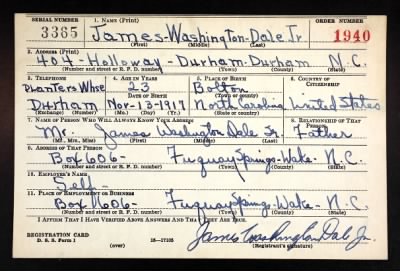 SERIAL NUMBER 1. NAME (Print) ORDER NUMBER
3365 James-Washington-Dale Jr. 1940
(First) (Middle) (Last)
2. ADDRESS (Print)
404-Holloway-Durham-Durham N.C.
(Number and street or R. F. D. number) (Town) (County) (State)
3. TELEPHONE 4. AGE IN YEARS 5. PLACE OF BIRTH 6. COUNTRY OF CITIZENSHIP
Planters Whse 23 Bolton
DATE OF BIRTH (Town or county)
Durham Nov-13-1917 North Carolina United States
(Exchange) (Number) (Mo.) (Day) (Yr.) (State or country)
7. NAME OF PERSON WHO WILL ALWAYS KNOW YOUR ADDRESS 8. RELATIONSHIP OF THAT PERSON
Mr. James Washington Dale Sr. Father
(Mr., Mrs., Miss) (First) (Middle) (Last)
9. ADDRESS OF THAT PERSON
Box 606- Fuquay Springs-Wake-N.C.
(Number and street or R. F. D. number) (Town) (County) (State)
10. EMPLOYER'S NAME
Self-
11. PLACE OF EMPLOYMENT OR BUSINESS
Box 606- Fuquay Springs-Wake-N.C.
(Number and street or R. F. D. number) (Town) (County) (State)
I AFFIRM THAT I HAVE VERIFIED ABOVE ANSWERS AND THAT THEY ARE TRUE.
REGISTRATION CARD
D. S. S. Form 1 (over) 16-17105 James Washington Dale Jr.
(Registrant's signature)